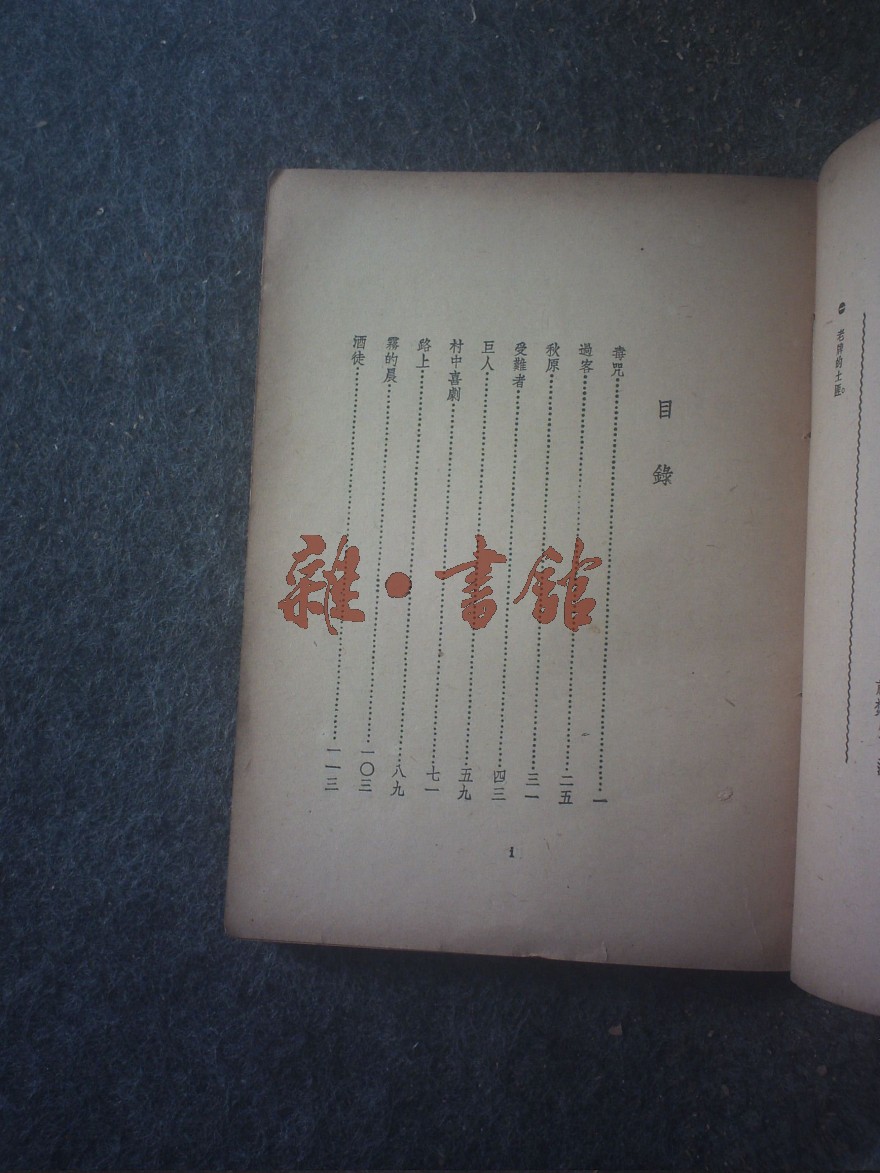 一 老牌的土匪。
目錄
毒咒 一
過客 二五
秋原 三一
受難者 四三
巨人 五九
村中喜劇 七一
路上 八九
霧的晨 一〇三
酒徒 一一三
1
雜•書館